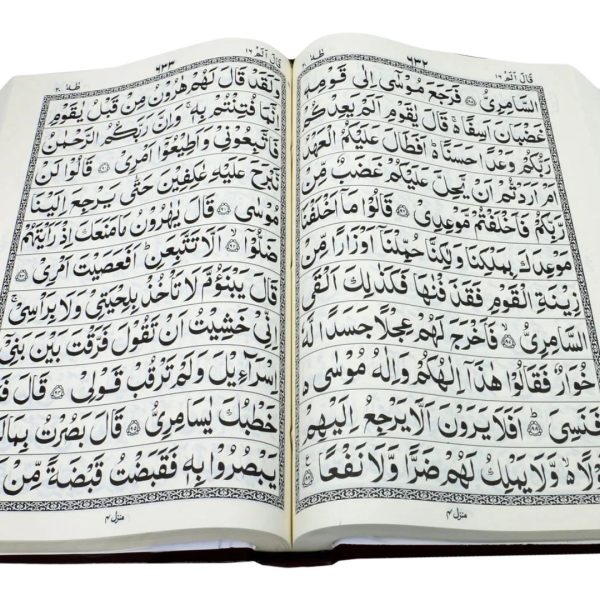 قَالَ اَلَمْ ١٦ ٦٣٢ طٰهٰ ٢٠
السَّامِرِيُّ ﴿۸۵﴾ فَرَجَعَ مُوْسٰٓى اِلٰى قَوْمِهٖ
غَضْبَانَ اَسِفًا ۚ قَالَ يٰقَوْمِ اَلَمْ يَعِدْكُمْ
رَبُّكُمْ وَعْدًا حَسَنًا ؕ اَفَطَالَ عَلَيْكُمُ الْعَهْدُ
اَمْ اَرَدْتُّمْ اَنْ يَّحِلَّ عَلَيْكُمْ غَضَبٌ مِّنْ
رَّبِّكُمْ فَاَخْلَفْتُمْ مَّوْعِدِيْ ﴿۸۶﴾ قَالُوْا مَآ اَخْلَفْنَا
مَوْعِدَكَ بِمَلْكِنَا وَلٰكِنَّا حُمِّلْنَآ اَوْزَارًا مِّنْ
زِيْنَةِ الْقَوْمِ فَقَذَفْنٰهَا فَكَذٰلِكَ اَلْقَى
السَّامِرِيُّ ﴿۸۷﴾ فَاَخْرَجَ لَهُمْ عِجْلًا جَسَدًا لَّهٗ
خُوَارٌ فَقَالُوْا هٰذَآ اِلٰهُكُمْ وَاِلٰهُ مُوْسٰى ۬
فَنَسِيَ ﴿۸۸﴾ اَفَلَا يَرَوْنَ اَلَّا يَرْجِعُ اِلَيْهِمْ
وَّلَا يَمْلِكُ لَهُمْ ضَرًّا وَّلَا نَفْعًا ﴿۸۹﴾
منزل ٤
قَالَ اَلَمْ ١٦ ٦٣٣ طٰهٰ ٢٠
وَلَقَدْ قَالَ لَهُمْ هٰرُوْنُ مِنْ قَبْلُ يٰقَوْمِ
اِنَّمَا فُتِنْتُمْ بِهٖ ۚ وَاِنَّ رَبَّكُمُ الرَّحْمٰنُ
فَاتَّبِعُوْنِيْ وَاَطِيْعُوْٓا اَمْرِيْ ﴿۹۰﴾ قَالُوْا لَنْ
نَّبْرَحَ عَلَيْهِ عٰكِفِيْنَ حَتّٰى يَرْجِعَ اِلَيْنَا
مُوْسٰى ﴿۹۱﴾ قَالَ يٰهٰرُوْنُ مَا مَنَعَكَ اِذْ رَاَيْتَهُمْ
ضَلُّوْٓا ﴿۹۲﴾ اَلَّا تَتَّبِعَنِ ؕ اَفَعَصَيْتَ اَمْرِيْ ﴿۹۳﴾
قَالَ يَبْنَؤُمَّ لَا تَاْخُذْ بِلِحْيَتِيْ وَلَا بِرَاْسِيْ ۚ
اِنِّيْ خَشِيْتُ اَنْ تَقُوْلَ فَرَّقْتَ بَيْنَ بَنِيْٓ
اِسْرَآءِيْلَ وَلَمْ تَرْقُبْ قَوْلِيْ ﴿۹۴﴾ قَالَ
خَطْبُكَ يٰسَامِرِيُّ ﴿۹۵﴾ قَالَ بَصُرْتُ بِمَا لَمْ
يَبْصُرُوْا بِهٖ فَقَبَضْتُ قَبْضَةً مِّنْ
منزل ٤